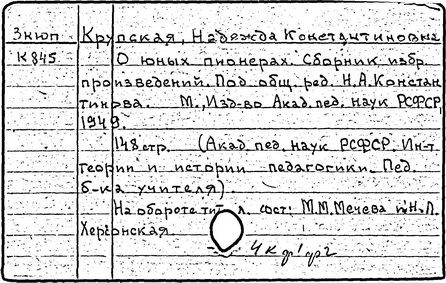 Зкюп Крупская, Надежда Константиновна
К845 О юных пионерах. Сборник избр.
произведений. Под общ. ред. Н.А.Констан
тинова. М., Изд-во Акад. пед. наук РСФСР,
1949.
148 стр. (Акад. пед. наук РСФСР. Ин-т
теории и истории педагогики. Пед.
б-ка учителя).
На обороте тит. л. сост: М.М.Мечева и Н.Л.
Херсонская